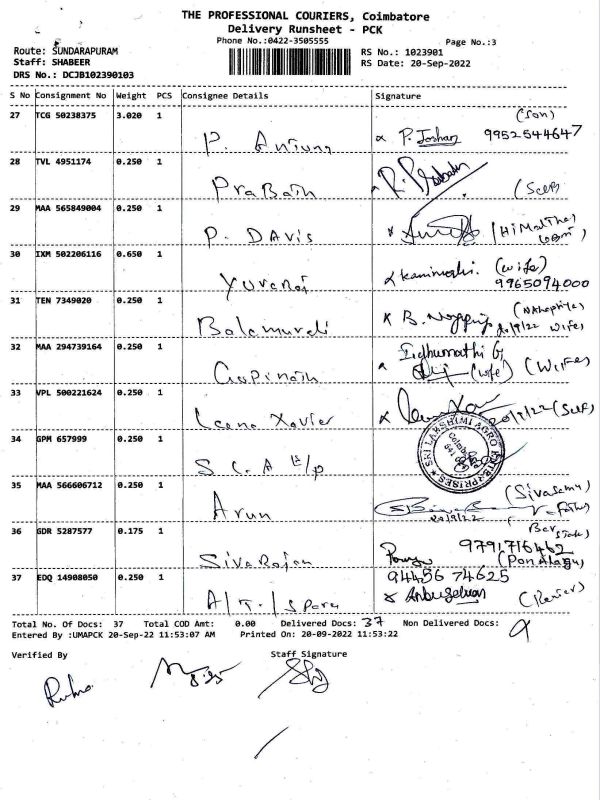 THE PROFESSIONAL COURIERS, Coimbatore
Delivery Runsheet - PCK
Phone No.:0422-3505555
Page No.:3
Route: SUNDARAPURAM
RS No.: 1023901
Staff: SHABEER
RS Date: 20-Sep-2022
DRS No.: DCJB102390103
S No Consignment No Weight PCS Consignee Details Signature
27 TCG 50238375 3.020 1 (Son)
P. Antony P. Joshan 9952544647
28 TVL 4951174 0.250 1
Prabath (Self)
29 MAA 565849004 0.250 1
P. DAVIS
30 IXM 502206116 0.650 1 (wife)
Yuvaraj 9965094000
31 TEN 7349020 0.250 1
Balamurali 20/9/22 wife)
32 MAA 294739164 0.250 1
Gopinath (wife) (Wife)
33 VPL 500221624 0.250 1
Leena Xavier 20/9/22 (Self)
34 GPM 657999 0.250 1
SRI LAKSHIMI AGRO ENTERPRISES
Coimbatore
35 MAA 566606712 0.250 1
Arun 20/9/22
36 GDR 5287577 0.175 1
Sivarajan 9791716462
37 EDQ 14908050 0.250 1 94456 74625
Total No. Of Docs: 37 Total COD Amt: 0.00 Delivered Docs: 37 Non Delivered Docs:
Entered By :UMAPCK 20-Sep-22 11:53:07 AM Printed On: 20-09-2022 11:53:22
Verified By Staff Signature